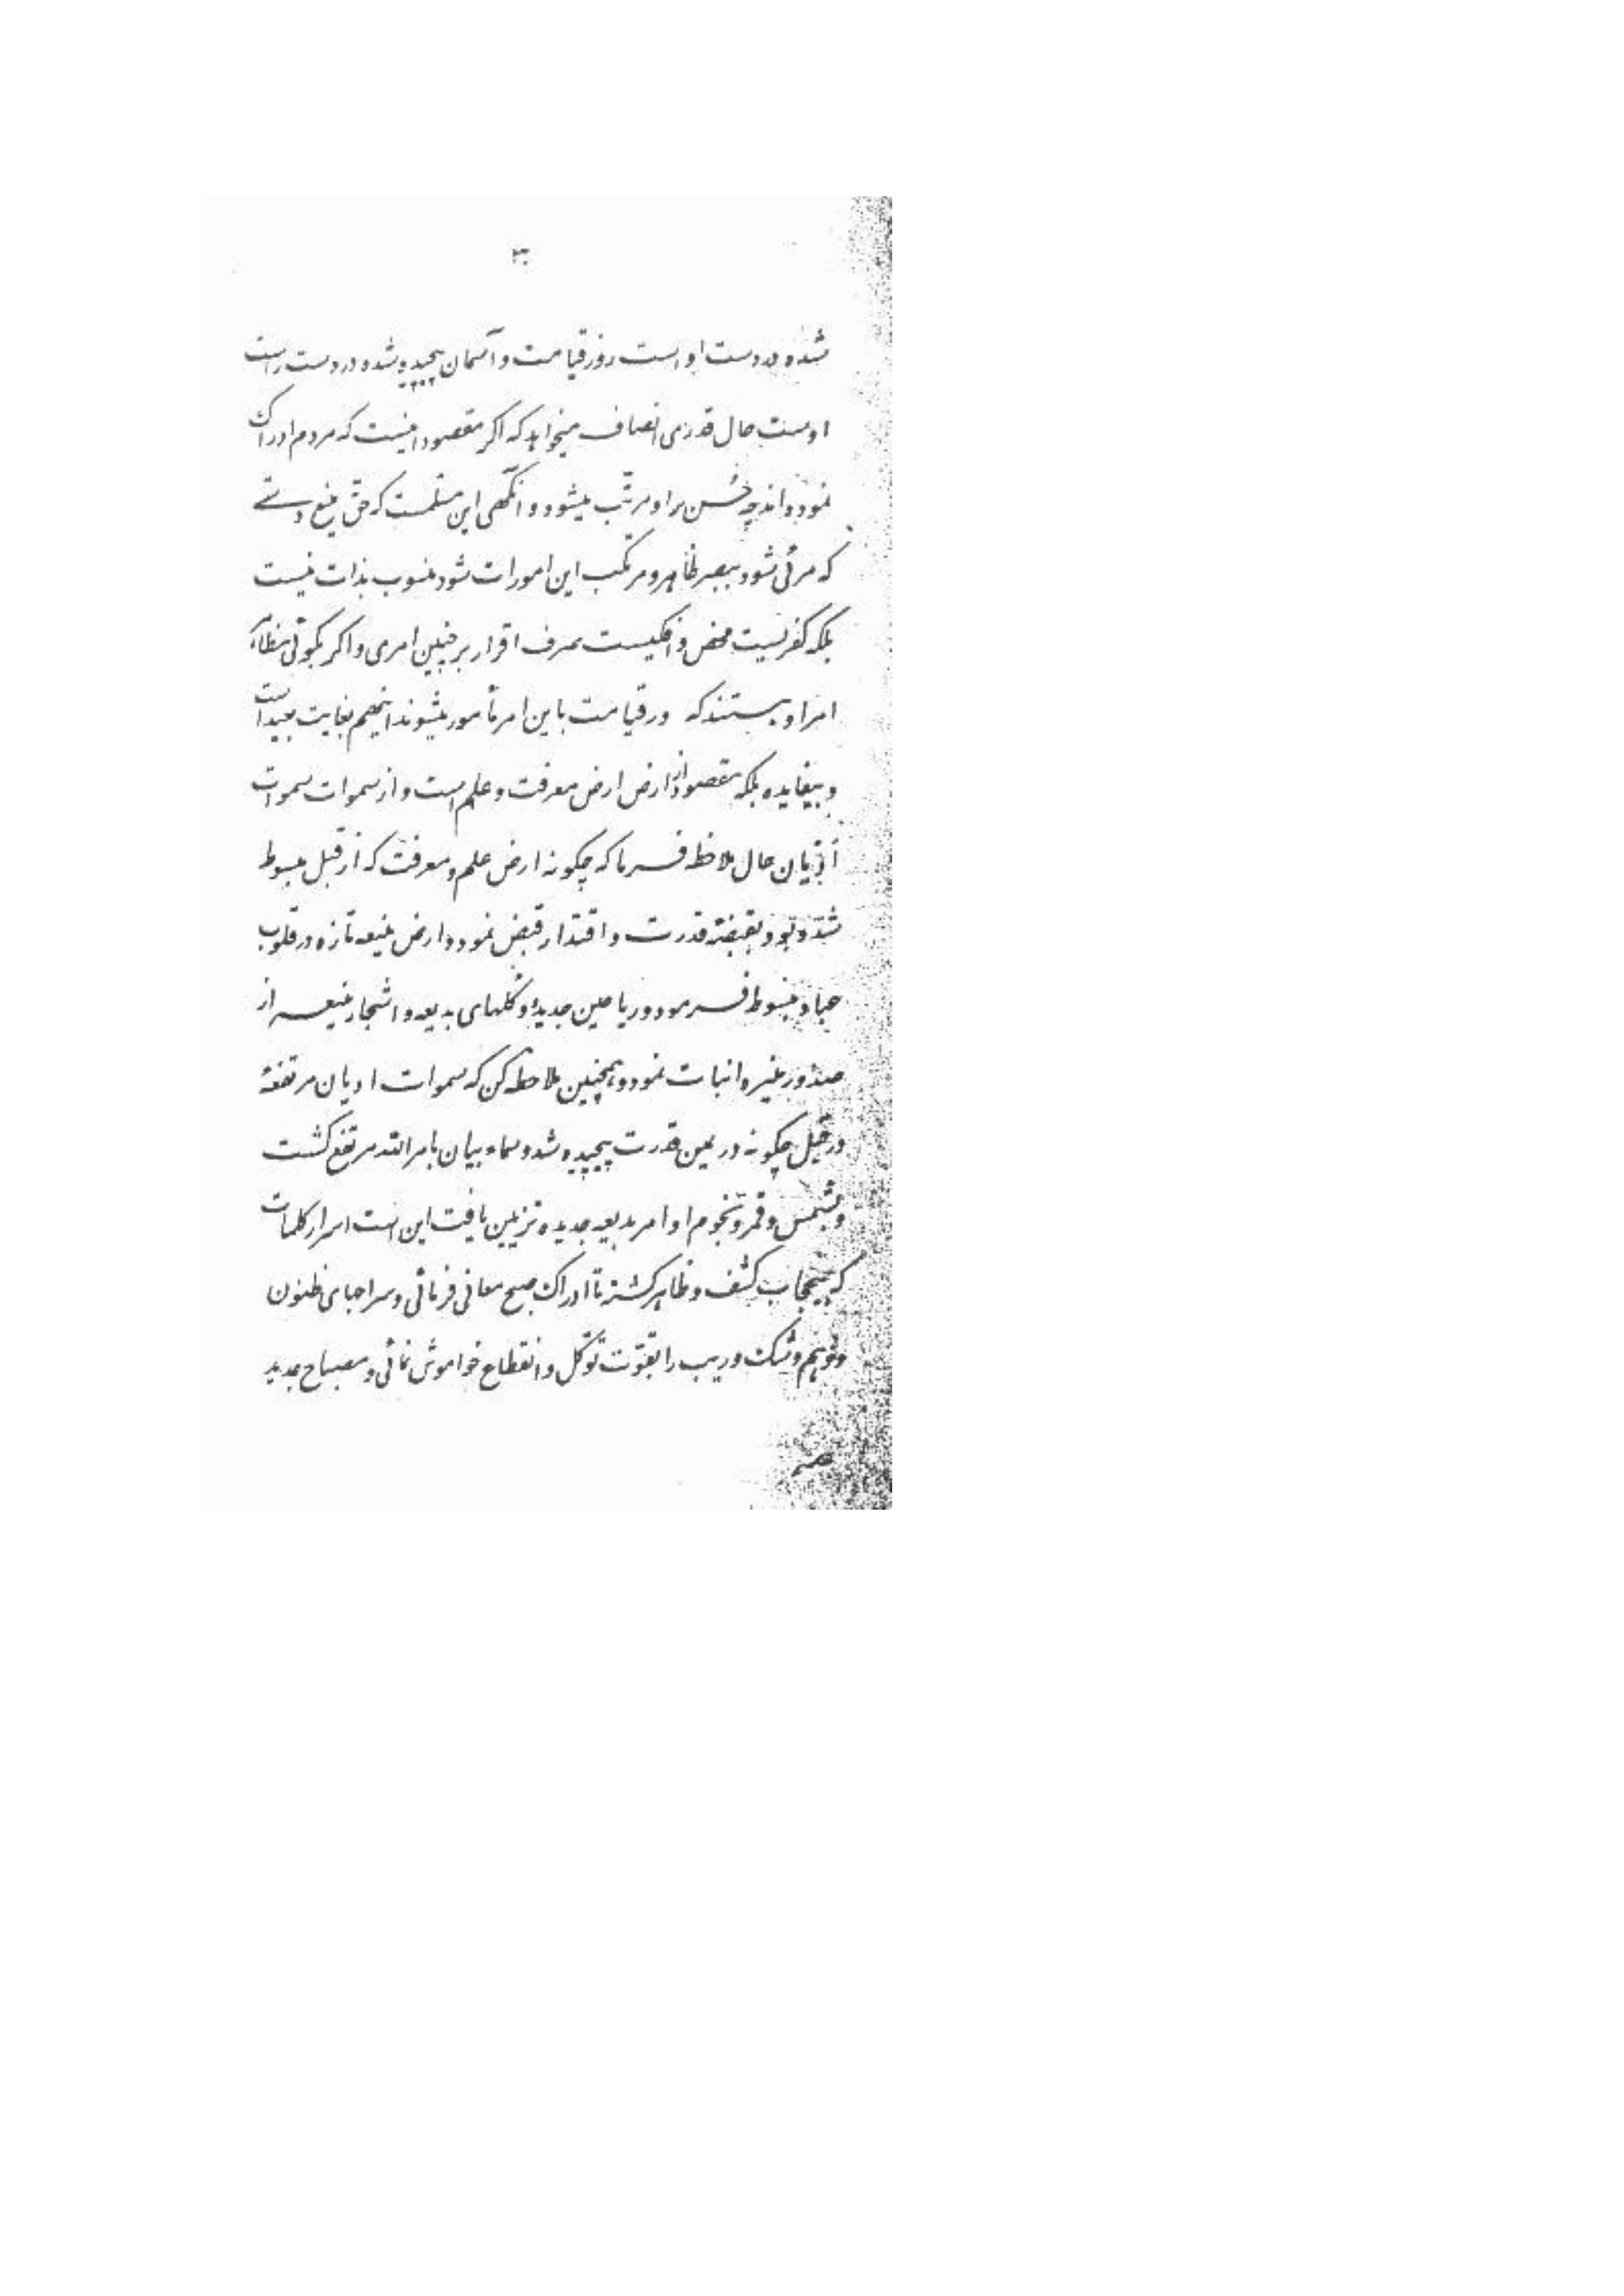 ۳۰
شده در دست اوست روز قیامت و آسمان پیچیده شده در دست راست
اوست حال قدری انصاف میخواهد که اکر مقصود اینست که مردم ادراک
نموده‌اند چه حُسن بر او مرتّب میشود و انکهی این مسلّمست که حقّ منیع دستی
که مرئی شود ببصر ظاهر و مرتکب این امورات شود منسوب بذات نیست
بلکه کفریست محض و افکیست صرف اقرار بر چنین امری و اکر بکوئی مظاهر
امر او هستند که در قیامت باین امر مأمور میشوند اینهم بغایت بعید است
و بیفایده بلکه مقصود از ارض ارض معرفت و علم است و از سموات سموات
ادیان حال ملاحظه فرما که چکونه ارض علم و معرفت که از قبل مبسوط
شده بود بقبضهٔ قدرت و اقتدار قبض نمود و ارض منیعه تازه در قلوب
عباد مبسوط فرمود و ریاحین جدیده و کلهای بدیعه و اشجار منیعه از
صدور منیره انبات نمود و همچنین ملاحظه کن که سموات ادیان مرتفعهٔ
در قبل چکونه در یمین قدرت پیچیده شد و سماء بیان بامر الله مرتفع کشت
و بشمس و قمر و نجوم اوامر بدیعه جدیده تزیین یافت این است اسرار کلمات
که بیحجاب کشف و ظاهر کشته تا ادراک صبح معانی فرمائی و سراجهای ظنون
و وهم و شک و ریب را بقوّت توکّل و انقطاع خواموش نمائی و مصباح جدید